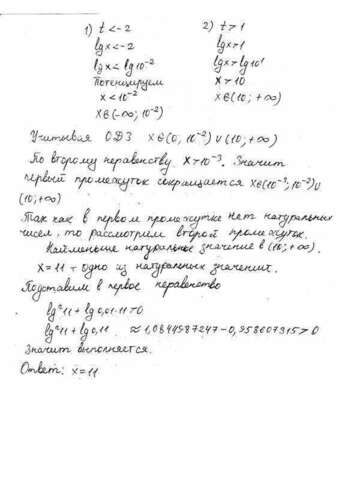 1) t < -2 2) t > 1
lgx < -2 lgx > 1
lgx < lg10⁻² lgx > lg10¹
Потенцируем x > 10
x < 10⁻² x∈(10; +∞)
x∈(-∞; 10⁻²)
Учитывая ОДЗ x∈(0; 10⁻²)∪(10; +∞)
По второму неравенству x > 10⁻³. Значит
первый промежуток сокращается x∈(10⁻³; 10⁻²)∪
(10; +∞)
Так как в первом промежутке нет натуральных
чисел, то рассмотрим второй промежуток.
Наименьшее натуральное значение в (10; +∞).
x = 11 - одно из натуральных значений.
Подставим в первое неравенство
lg²11 + lg0,01·11 > 0
lg²11 + lg0,11 ≈ 1,0844987247 - 0,958607315 > 0
Значит выполняется.
Ответ: x = 11